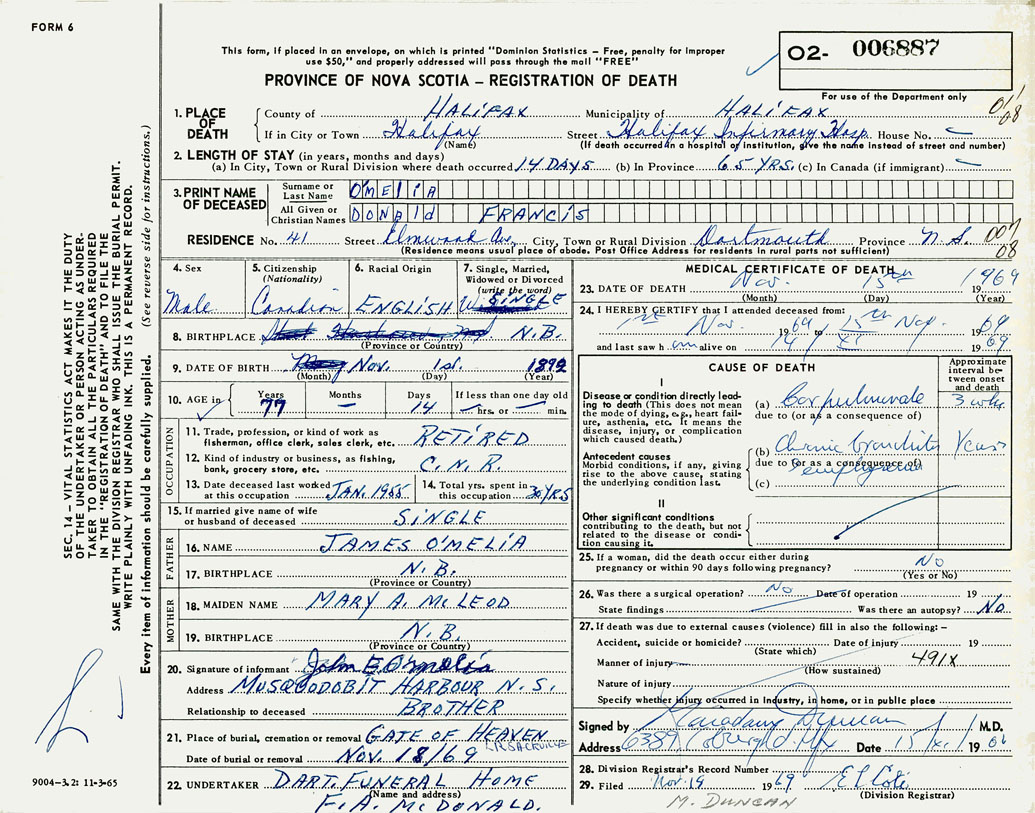 FORM 6
This form, if placed in an envelope, on which is printed "Dominion Statistics – Free, penalty for improper
use $50," and properly addressed will pass through the mail "FREE"
PROVINCE OF NOVA SCOTIA – REGISTRATION OF DEATH
02- 006887
For use of the Department only
1. PLACE OF DEATH
County of HALIFAX Municipality of HALIFAX
If in City or Town Halifax Street Halifax Infirmary Hosp. House No. –
(Name) (If death occurred in a hospital or institution, give the name instead of street and number)
2. LENGTH OF STAY (in years, months and days)
(a) In City, Town or Rural Division where death occurred 14 DAYS (b) In Province 65 YRS. (c) In Canada (if immigrant) –
3. PRINT NAME OF DECEASED
Surname or Last Name O'MELIA
All Given or Christian Names DONALD FRANCIS
RESIDENCE No. 41 Street Elmwood Av. City, Town or Rural Division Dartmouth Province N.S.
(Residence means usual place of abode. Post Office Address for residents in rural parts not sufficient)
007
08
4. Sex
Male
5. Citizenship
(Nationality)
Canadian
6. Racial Origin
ENGLISH
7. Single, Married,
Widowed or Divorced
(write the word)
SINGLE
8. BIRTHPLACE N.B.
(Province or Country)
9. DATE OF BIRTH Nov. 1st. 1892
(Month) (Day) (Year)
10. AGE in
Years Months Days If less than one day old
77 – 14 – hrs. or – min.
OCCUPATION
11. Trade, profession, or kind of work as
fisherman, office clerk, sales clerk, etc. RETIRED
12. Kind of industry or business, as fishing,
bank, grocery store, etc. C.N.R.
13. Date deceased last worked
at this occupation JAN. 1955
14. Total yrs. spent in
this occupation 30 YRS
15. If married give name of wife
or husband of deceased SINGLE
FATHER
16. NAME JAMES O'MELIA
17. BIRTHPLACE N.B.
(Province or Country)
MOTHER
18. MAIDEN NAME MARY A. McLEOD
19. BIRTHPLACE N.B.
(Province or Country)
20. Signature of informant John E O'Melia
Address MUSQUODOBIT HARBOUR N.S.
Relationship to deceased BROTHER
21. Place of burial, cremation or removal GATE OF HEAVEN
LR. SACKVILLE
Date of burial or removal NOV. 18/69
22. UNDERTAKER DART. FUNERAL HOME
(Name and address)
F.A. McDONALD.
MEDICAL CERTIFICATE OF DEATH
23. DATE OF DEATH Nov. 15th 1969
(Month) (Day) (Year)
24. I HEREBY CERTIFY that I attended deceased from:
1st Nov. 1969 to 15th Nov 1969
and last saw h im alive on 14 XI 1969
CAUSE OF DEATH
Approximate
interval be-
tween onset
and death
I
Disease or condition directly lead-
ing to death (This does not mean
the mode of dying, e.g., heart fail-
ure, asthenia, etc. It means the
disease, injury, or complication
which caused death.)
(a) Cor pulmonale 3 wks
due to (or as a consequence of)
Antecedent causes
Morbid conditions, if any, giving
rise to the above cause, stating
the underlying condition last.
(b) Chronic bronchitis Years
due to (or as a consequence of)
emphysema
(c)
II
Other significant conditions
contributing to the death, but not
related to the disease or condi-
tion causing it.
25. If a woman, did the death occur either during
pregnancy or within 90 days following pregnancy? No
(Yes or No)
26. Was there a surgical operation? No Date of operation 19
State findings Was there an autopsy? No
27. If death was due to external causes (violence) fill in also the following: –
Accident, suicide or homicide? Date of injury 19
(State which)
Manner of injury 491X
(How sustained)
Nature of injury
Specify whether injury occurred in industry, in home, or in public place
Signed by M.D.
Address 6389 Coburg Rd. Hfx Date 15/XI/ 19
28. Division Registrar's Record Number
29. Filed Nov. 19 1969
(Division Registrar)
M. DUNCAN
SEC. 14 – VITAL STATISTICS ACT MAKES IT THE DUTY
OF THE UNDERTAKER OR PERSON ACTING AS UNDER-
TAKER TO OBTAIN ALL THE PARTICULARS REQUIRED
IN THE "REGISTRATION OF DEATH" AND TO FILE THE
SAME WITH THE DIVISION REGISTRAR WHO SHALL ISSUE THE BURIAL PERMIT.
WRITE PLAINLY WITH UNFADING INK. THIS IS A PERMANENT RECORD.
Every item of information should be carefully supplied. (See reverse side for instructions.)
9004-3.2: 11-3-65